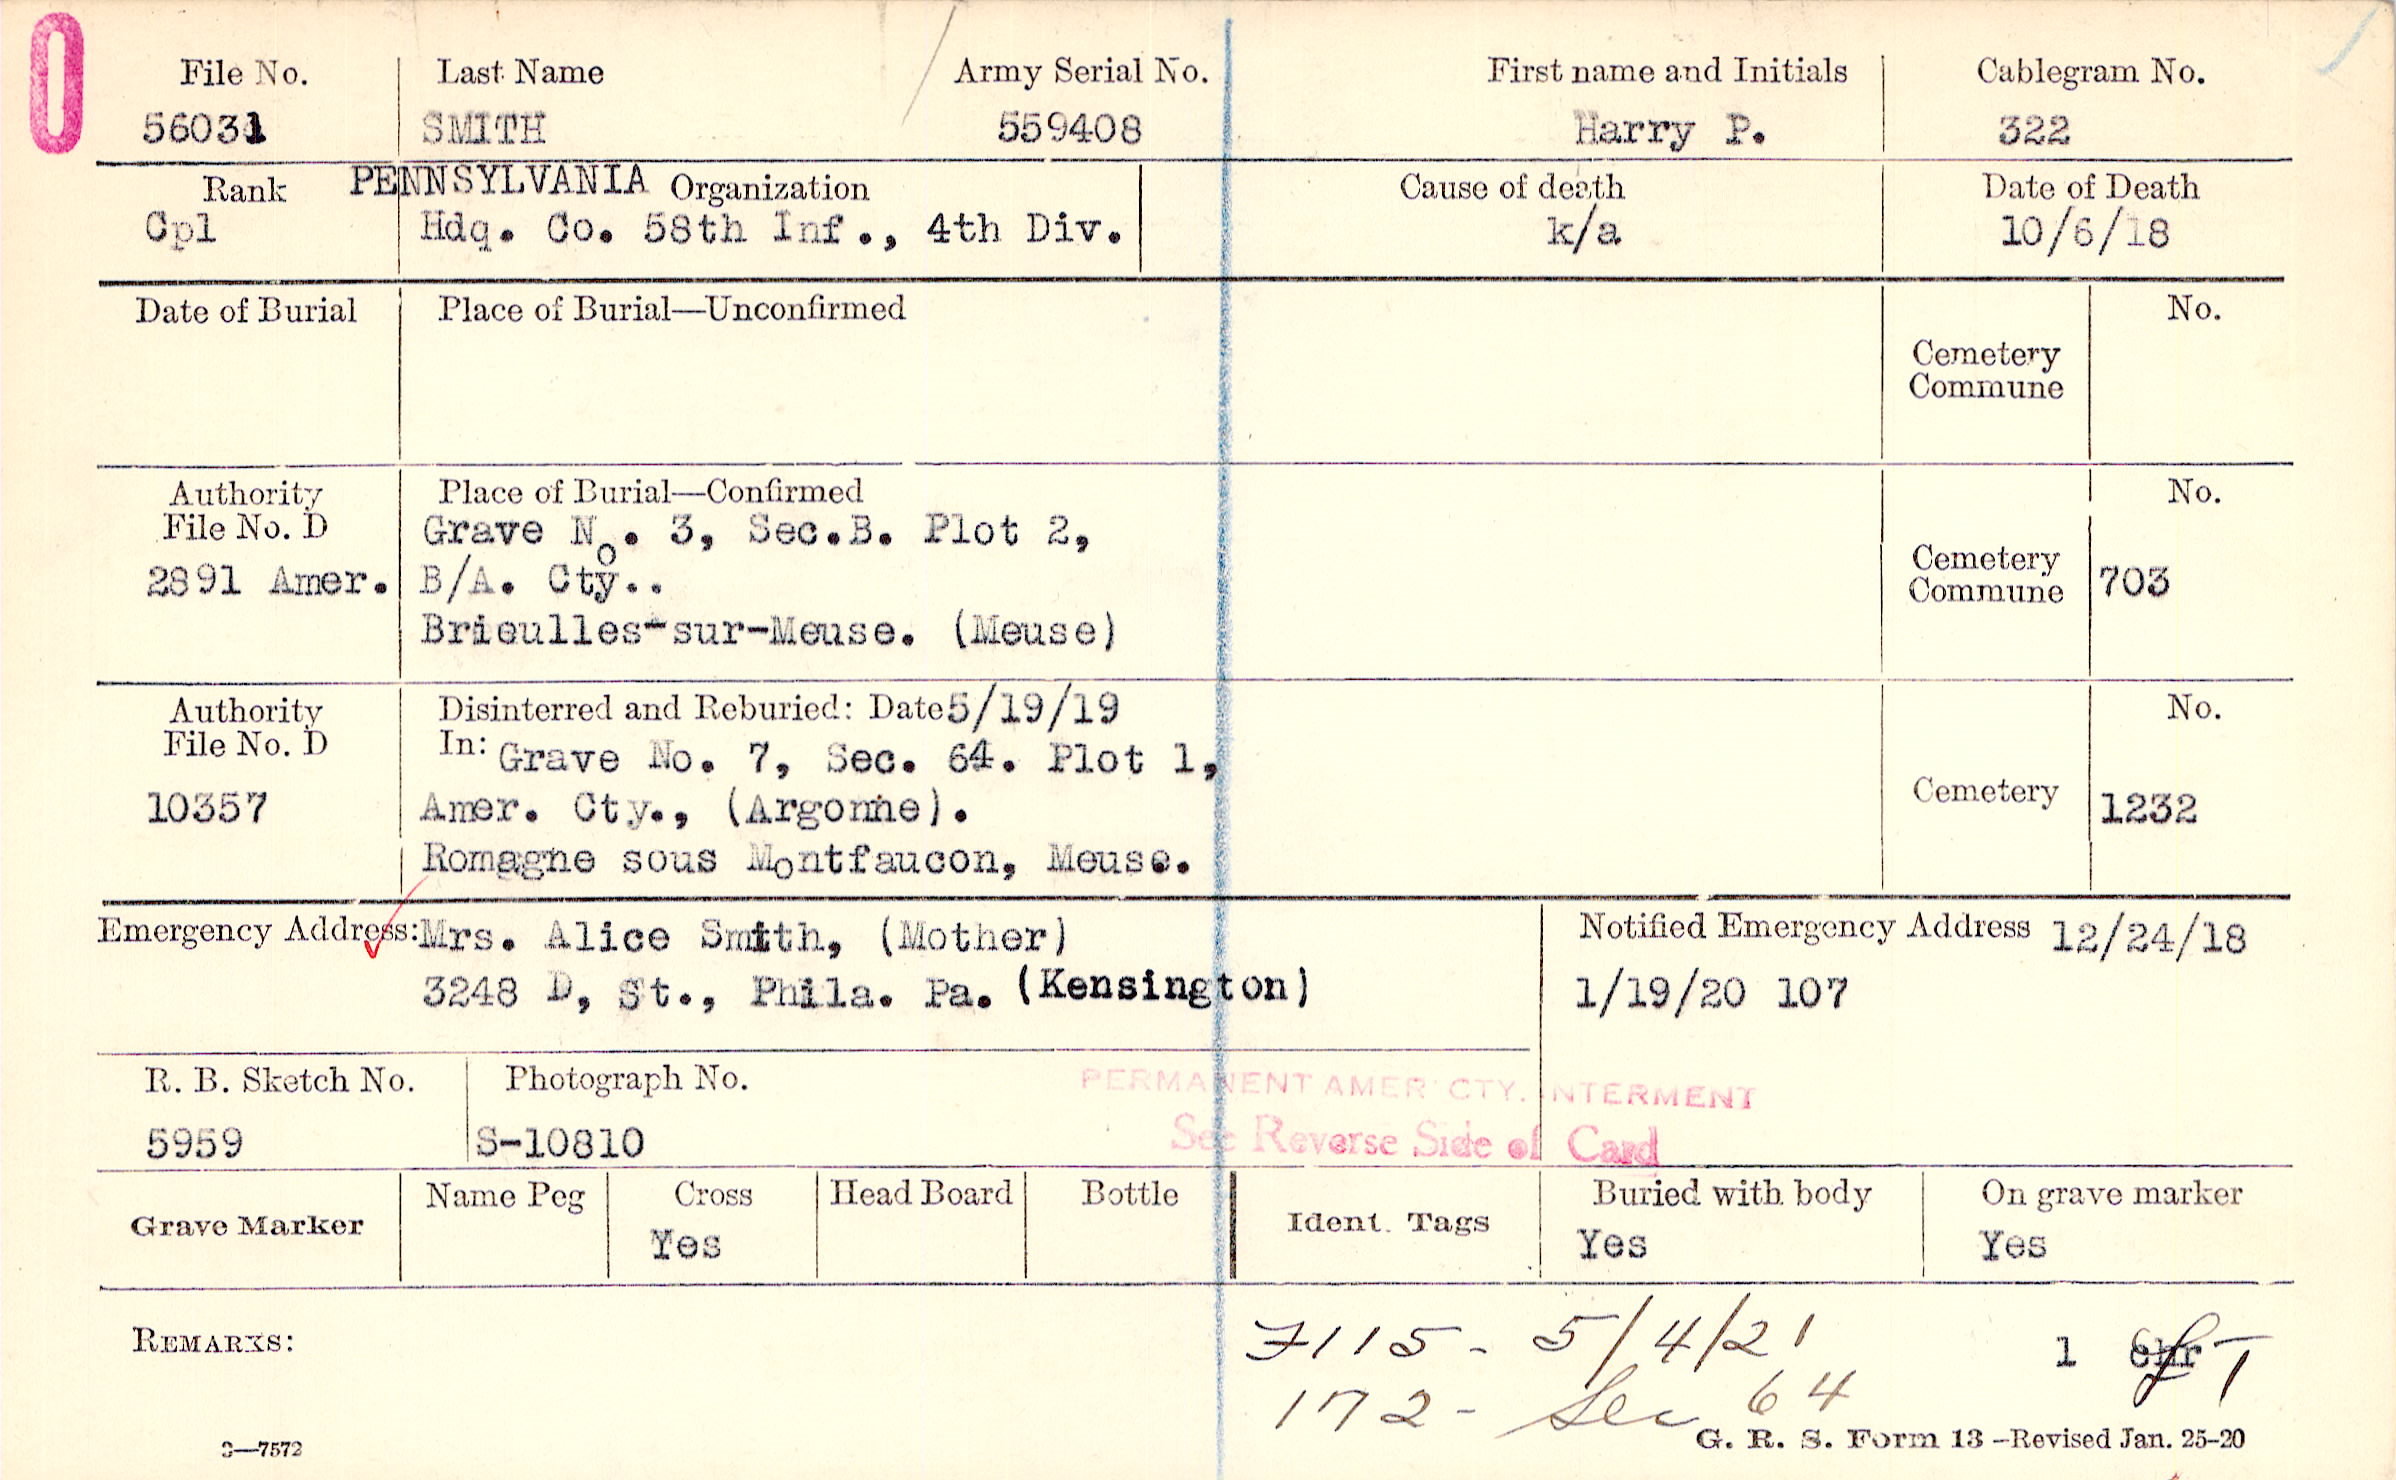 0
File No. Last Name Army Serial No. First name and Initials Cablegram No.
56031 SMITH 559408 Harry P. 322
Rank PENNSYLVANIA Organization Cause of death Date of Death
Cpl Hdq. Co. 58th Inf., 4th Div. k/a 10/6/18
Date of Burial Place of Burial—Unconfirmed No.
Cemetery
Commune
Authority Place of Burial—Confirmed No.
File No. D Grave No. 3, Sec.B. Plot 2,
2891 Amer. B/A. Cty.. Cemetery
Commune 703
Brieulles-sur-Meuse. (Meuse)
Authority Disinterred and Reburied: Date 5/19/19 No.
File No. D In: Grave No. 7, Sec. 64. Plot 1,
10357 Amer. Cty., (Argonne). Cemetery 1232
Romagne sous Montfaucon, Meuse.
Emergency Address: Mrs. Alice Smith, (Mother) Notified Emergency Address 12/24/18
3248 D, St., Phila. Pa. (Kensington) 1/19/20 107
R. B. Sketch No. Photograph No. PERMANENT AMER CTY. INTERMENT
5959 S-10810 See Reverse Side of Card
Grave Marker Name Peg Cross Head Board Bottle Ident. Tags Buried with body On grave marker
Yes Yes Yes
REMARKS: 7115 - 5/4/21 1
172 - Sec 64
3—7572 G. R. S. Form 13 -Revised Jan. 25-20